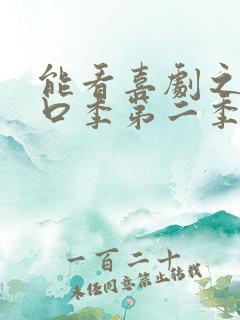 能看喜劇之
口季第二季
一百二十
未经同意禁止转载